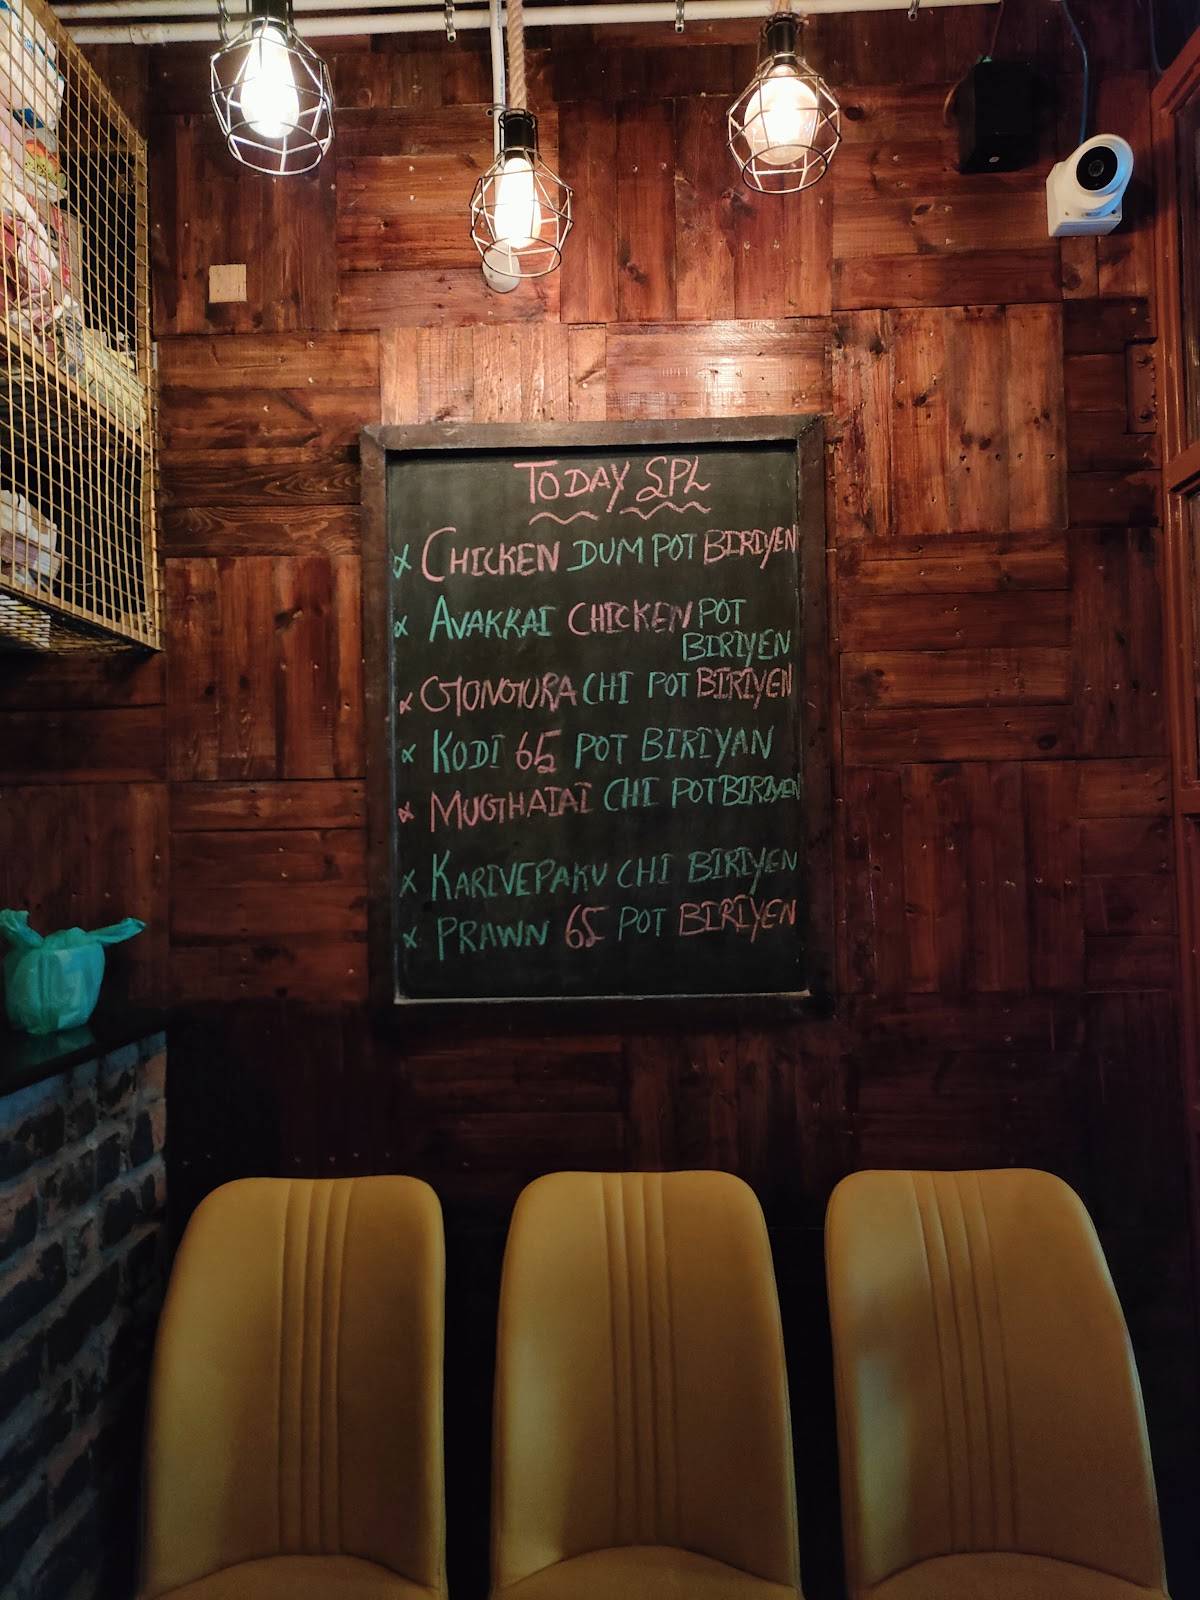 TODAY SPL
x CHICKEN DUM POT BIRIYEN
x AVAKKAI CHICKEN POT
BIRIYEN
x GONGURA CHI POT BIRIYEN
x KODI 65 POT BIRIYAN
x MUGHALAI CHI POT BIRIYEN
x KARIVEPAKU CHI BIRIYEN
x PRAWN 65 POT BIRIYEN